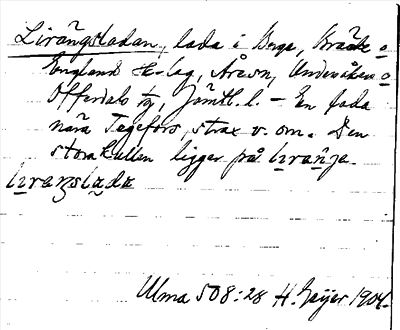 Lirängsladan, lada i Berge, Bräcke o
England H-lag, Åresn, Undersåkers o
Offerdals tg, Jämtl. l. – En lada
nära Tegefors, strax v. om. Den
stora kullen ligger på liränje.
liraŋslada
Ulma 508:28 H. Geijer 1904.